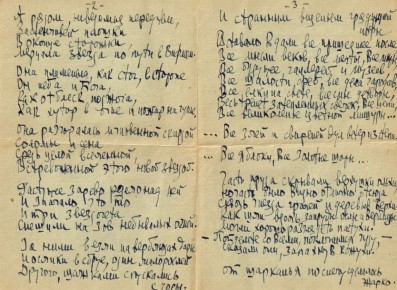 -2-
А рядом, неведомая перед тем,
Застенчивей плошки
В оконце сторожки
Мерцала звезда по пути в Вифлеем.
Она пламенела, как стог, в стороне
От неба и Бога,
Как отблеск поджога,
Как хутор в огне и пожар на гумне.
Она возвышалась горящей скирдой
Соломы и сена
Средь целой вселенной,
Встревоженной этою новой звездой.
Растущее зарево рдело над ней
И значило что-то
И три звездочета
Спешили на зов небывалых огней.
За ними везли на верблюдах дары
И ослики в сбруе, один малорослей
Другого, шажками спускались
с горы.
-3-
И странным виденьем грядущей
поры
Вставало вдали все пришедшее после
Все мысли веков, все мечты, все миры
Все будущее галерей и музеев,
Все шалости фей, все дела чародеев,
Все елки на свете, все сны детворы.
Весь трепет затепленных свечек, все цепи,
Все великолепье цветной мишуры...
... Все злей и свирепей дул ветер из степи...
... Все яблоки, все золотые шары...
Часть пруда скрывали верхушки ольхи
Но часть было видно отлично отсюда
Сквозь гнезда грачей и деревьев верхи
Как шли вдоль запруды ослы и верблюды
Могли хорошо разглядеть пастухи.
- Пойдемте со всеми, поклонимся чуду, -
Сказали они, запахнув кожухи.
От шарканья по снегу сделалось
жарко.